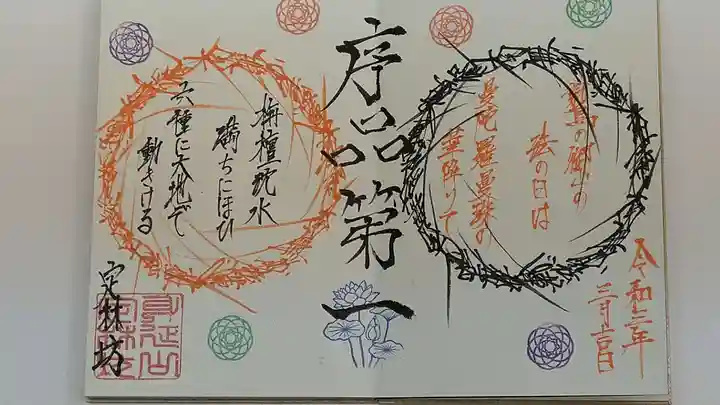 序品第一
法の日は
曼陀羅曼殊の
華降りて
栴檀沈水
満ちにほひ
六種に大地ぞ
動きける
令和三年
三月吉日
定林坊
身延山
定林坊